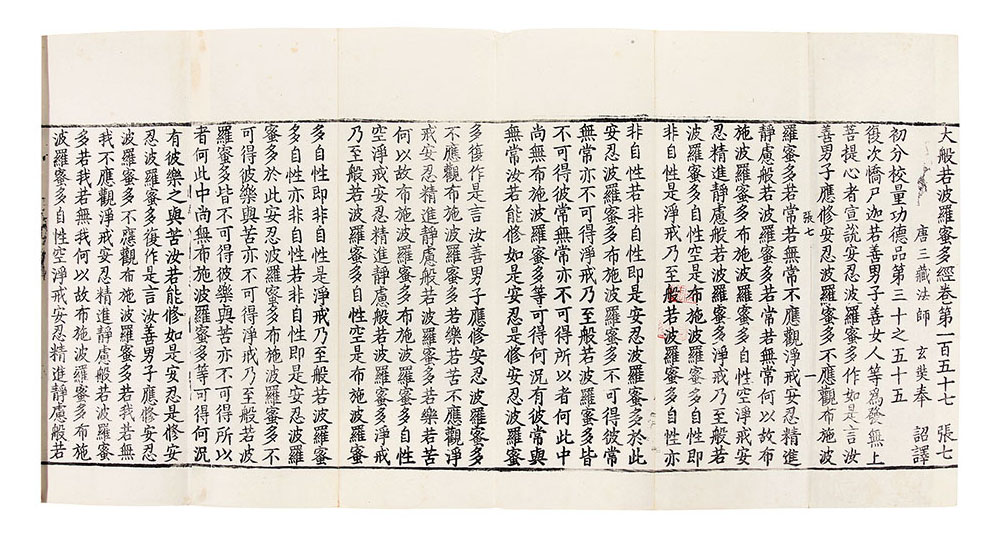 大般若波羅蜜多經卷第一百五十七 張七
唐三藏法師 玄奘奉 詔譯
初分校量功德品第三十之五十五
復次憍尸迦若善男子善女人等為發無上
菩提心者宣說安忍波羅蜜多作如是言汝
善男子應修安忍波羅蜜多不應觀布施波
張七 一
羅蜜多若常若無常不應觀淨戒安忍精進
靜慮般若波羅蜜多若常若無常何以故布
施波羅蜜多布施波羅蜜多自性空淨戒安
忍精進靜慮般若波羅蜜多淨戒乃至般若
波羅蜜多自性空是布施波羅蜜多自性即
非自性是淨戒乃至般若波羅蜜多自性亦
非自性若非自性即是安忍波羅蜜多於此
安忍波羅蜜多布施波羅蜜多不可得彼常
無常亦不可得淨戒乃至般若波羅蜜多皆
不可得彼常無常亦不可得所以者何此中
尚無布施波羅蜜多等可得何況有彼常與
無常汝若能修如是安忍是修安忍波羅蜜
多復作是言汝善男子應修安忍波羅蜜多
不應觀布施波羅蜜多若樂若苦不應觀淨
戒安忍精進靜慮般若波羅蜜多若樂若苦
何以故布施波羅蜜多布施波羅蜜多自性
空淨戒安忍精進靜慮般若波羅蜜多淨戒
乃至般若波羅蜜多自性空是布施波羅蜜
多自性即非自性是淨戒乃至般若波羅蜜
多自性亦非自性若非自性即是安忍波羅
蜜多於此安忍波羅蜜多布施波羅蜜多不
可得彼樂與苦亦不可得淨戒乃至般若波
羅蜜多皆不可得彼樂與苦亦不可得所以
者何此中尚無布施波羅蜜多等可得何況
有彼樂之與苦汝若能修如是安忍是修安
忍波羅蜜多復作是言汝善男子應修安忍
波羅蜜多不應觀布施波羅蜜多若我若無
我不應觀淨戒安忍精進靜慮般若波羅蜜
多若我若無我何以故布施波羅蜜多布施
波羅蜜多自性空淨戒安忍精進靜慮般若